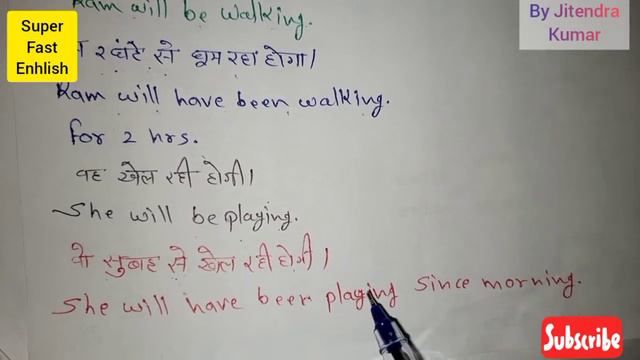 Super
Fast
Enhlish
By Jitendra
Kumar
Ram will be walking.
2 घंटे से घूम रहा होगा।
Ram will have been walking.
for 2 hrs.
वह खेल रही होगी।
She will be playing.
वो सुबह से खेल रही होगी।
She will have been playing since morning.
Subscribe